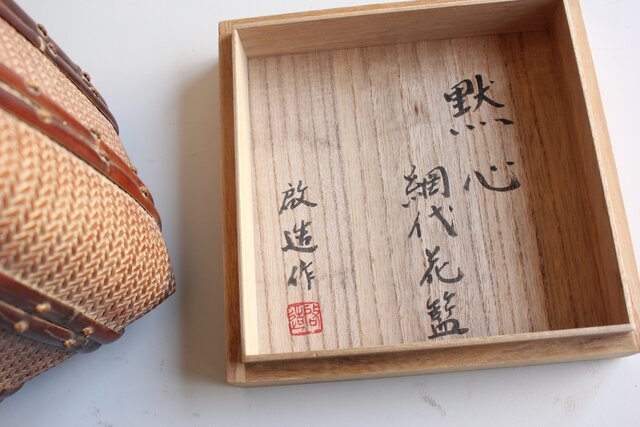 默心
網代花籃
啟造作
啓造